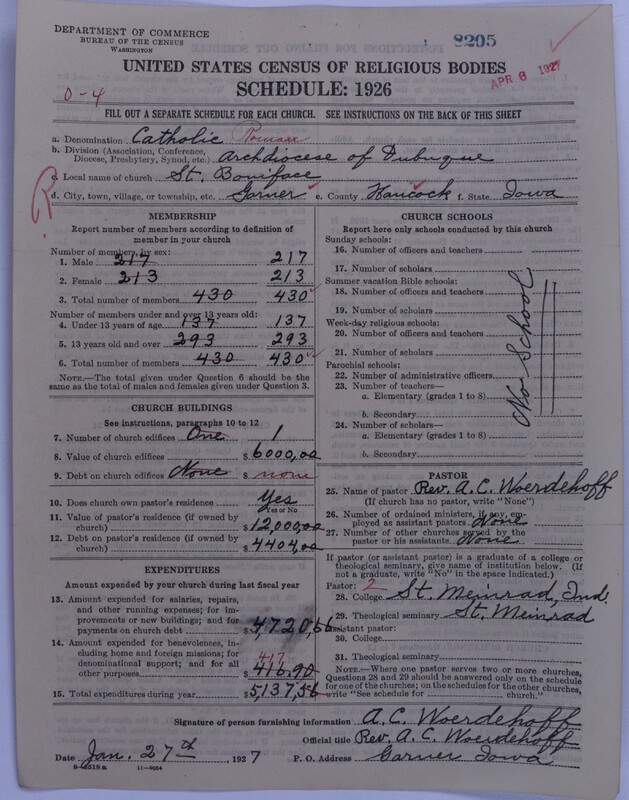 DEPARTMENT OF COMMERCE
BUREAU OF THE CENSUS
WASHINGTON
8205
APR 6 1927
UNITED STATES CENSUS OF RELIGIOUS BODIES
SCHEDULE: 1926
0-4
FILL OUT A SEPARATE SCHEDULE FOR EACH CHURCH. SEE INSTRUCTIONS ON THE BACK OF THIS SHEET
a. Denomination Catholic Roman
b. Division (Association, Conference, Diocese, Presbytery, Synod, etc.) Archdiocese of Dubuque
c. Local name of church St. Boniface
d. City, town, village, or township, etc. Garner e. County Hancock f. State Iowa
R
MEMBERSHIP
Report number of members according to definition of member in your church
Number of members, by sex:
1. Male 217 217
2. Female 213 213
3. Total number of members 430 430
Number of members under and over 13 years old:
4. Under 13 years of age 137 137
5. 13 years old and over 293 293
6. Total number of members 430 430
NOTE.—The total given under Question 6 should be the same as the total of males and females given under Question 3.
CHURCH BUILDINGS
See instructions, paragraphs 10 to 12
7. Number of church edifices One 1
8. Value of church edifices $ 6000,00
9. Debt on church edifices None $ none
10. Does church own pastor's residence Yes
Yes or No
11. Value of pastor's residence (if owned by church) $ 12,000,00
12. Debt on pastor's residence (if owned by church) $ 4404,00
EXPENDITURES
Amount expended by your church during last fiscal year
13. Amount expended for salaries, repairs, and other running expenses; for improvements or new buildings; and for payments on church debt $ 4,720,66
14. Amount expended for benevolences, including home and foreign missions; for denominational support; and for all other purposes $ 416.90
417
15. Total expenditures during year $ 5,137,56
CHURCH SCHOOLS
Report here only schools conducted by this church
Sunday schools:
16. Number of officers and teachers
17. Number of scholars
Summer vacation Bible schools:
18. Number of officers and teachers
19. Number of scholars
Week-day religious schools:
20. Number of officers and teachers
21. Number of scholars
Parochial schools:
22. Number of administrative officers
23. Number of teachers—
a. Elementary (grades 1 to 8)
b. Secondary
24. Number of scholars—
a. Elementary (grades 1 to 8)
b. Secondary
No School
PASTOR
25. Name of pastor Rev. A. C. Woerdehoff
(If church has no pastor, write "None")
26. Number of ordained ministers, if any, employed as assistant pastors None
27. Number of other churches served by the pastor or his assistants None
If pastor (or assistant pastor) is a graduate of a college or theological seminary, give name of institution below. (If not a graduate, write "No" in the space indicated.)
Pastor: 2
28. College St. Meinrad, Ind.
29. Theological seminary St. Meinrad
Assistant pastor:
30. College
31. Theological seminary
NOTE.—Where one pastor serves two or more churches, Questions 28 and 29 should be answered only on the schedule for one of the churches; on the schedules for the other churches, write "See schedule for church."
Signature of person furnishing information A. C. Woerdehoff
Official title Rev. A. C. Woerdehoff
Date Jan. 27th, 1927 P. O. Address Garner Iowa
11-9054